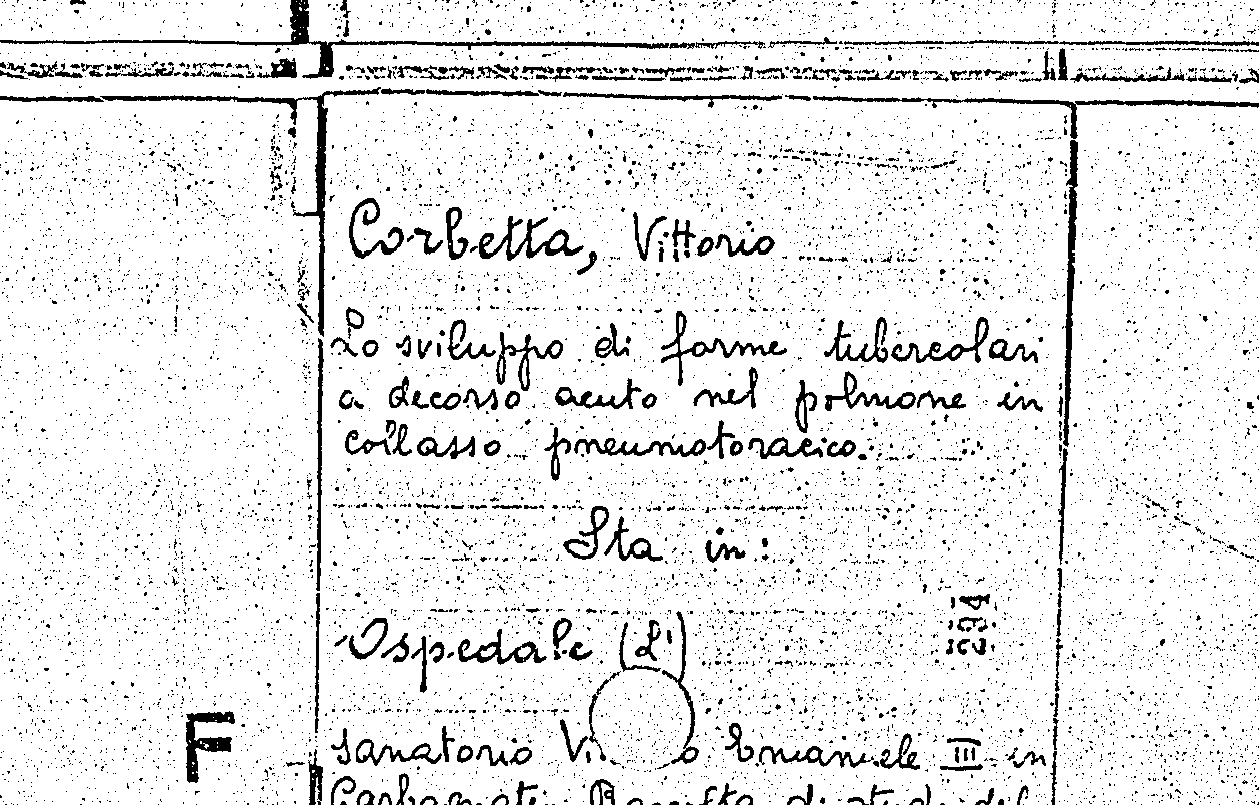 Corbetta, Vittorio
Lo sviluppo di forme tubercolari
a decorso acuto nel polmone in
collasso pneumotoracico.
Sta in:
Ospedale (L')
F
Sanatorio Vi o Emanuele III in
Garbagnate. Raccolta di studi del